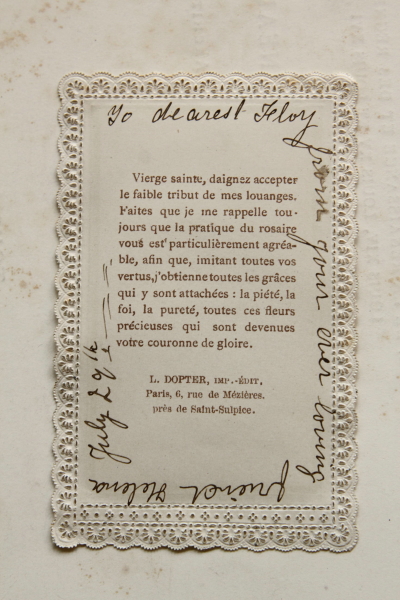 To dearest Floy
from your ever loving
friend Helena
July 29th
Vierge sainte, daignez accepter
le faible tribut de mes louanges.
Faites que je me rappelle tou-
jours que la pratique du rosaire
vous est particulièrement agréa-
ble, afin que, imitant toutes vos
vertus, j'obtienne toutes les grâces
qui y sont attachées : la piété, la
foi, la pureté, toutes ces fleurs
précieuses qui sont devenues
votre couronne de gloire.
L. DOPTER, IMP.-ÉDIT,
Paris, 6, rue de Mézières.
près de Saint-Sulpice.